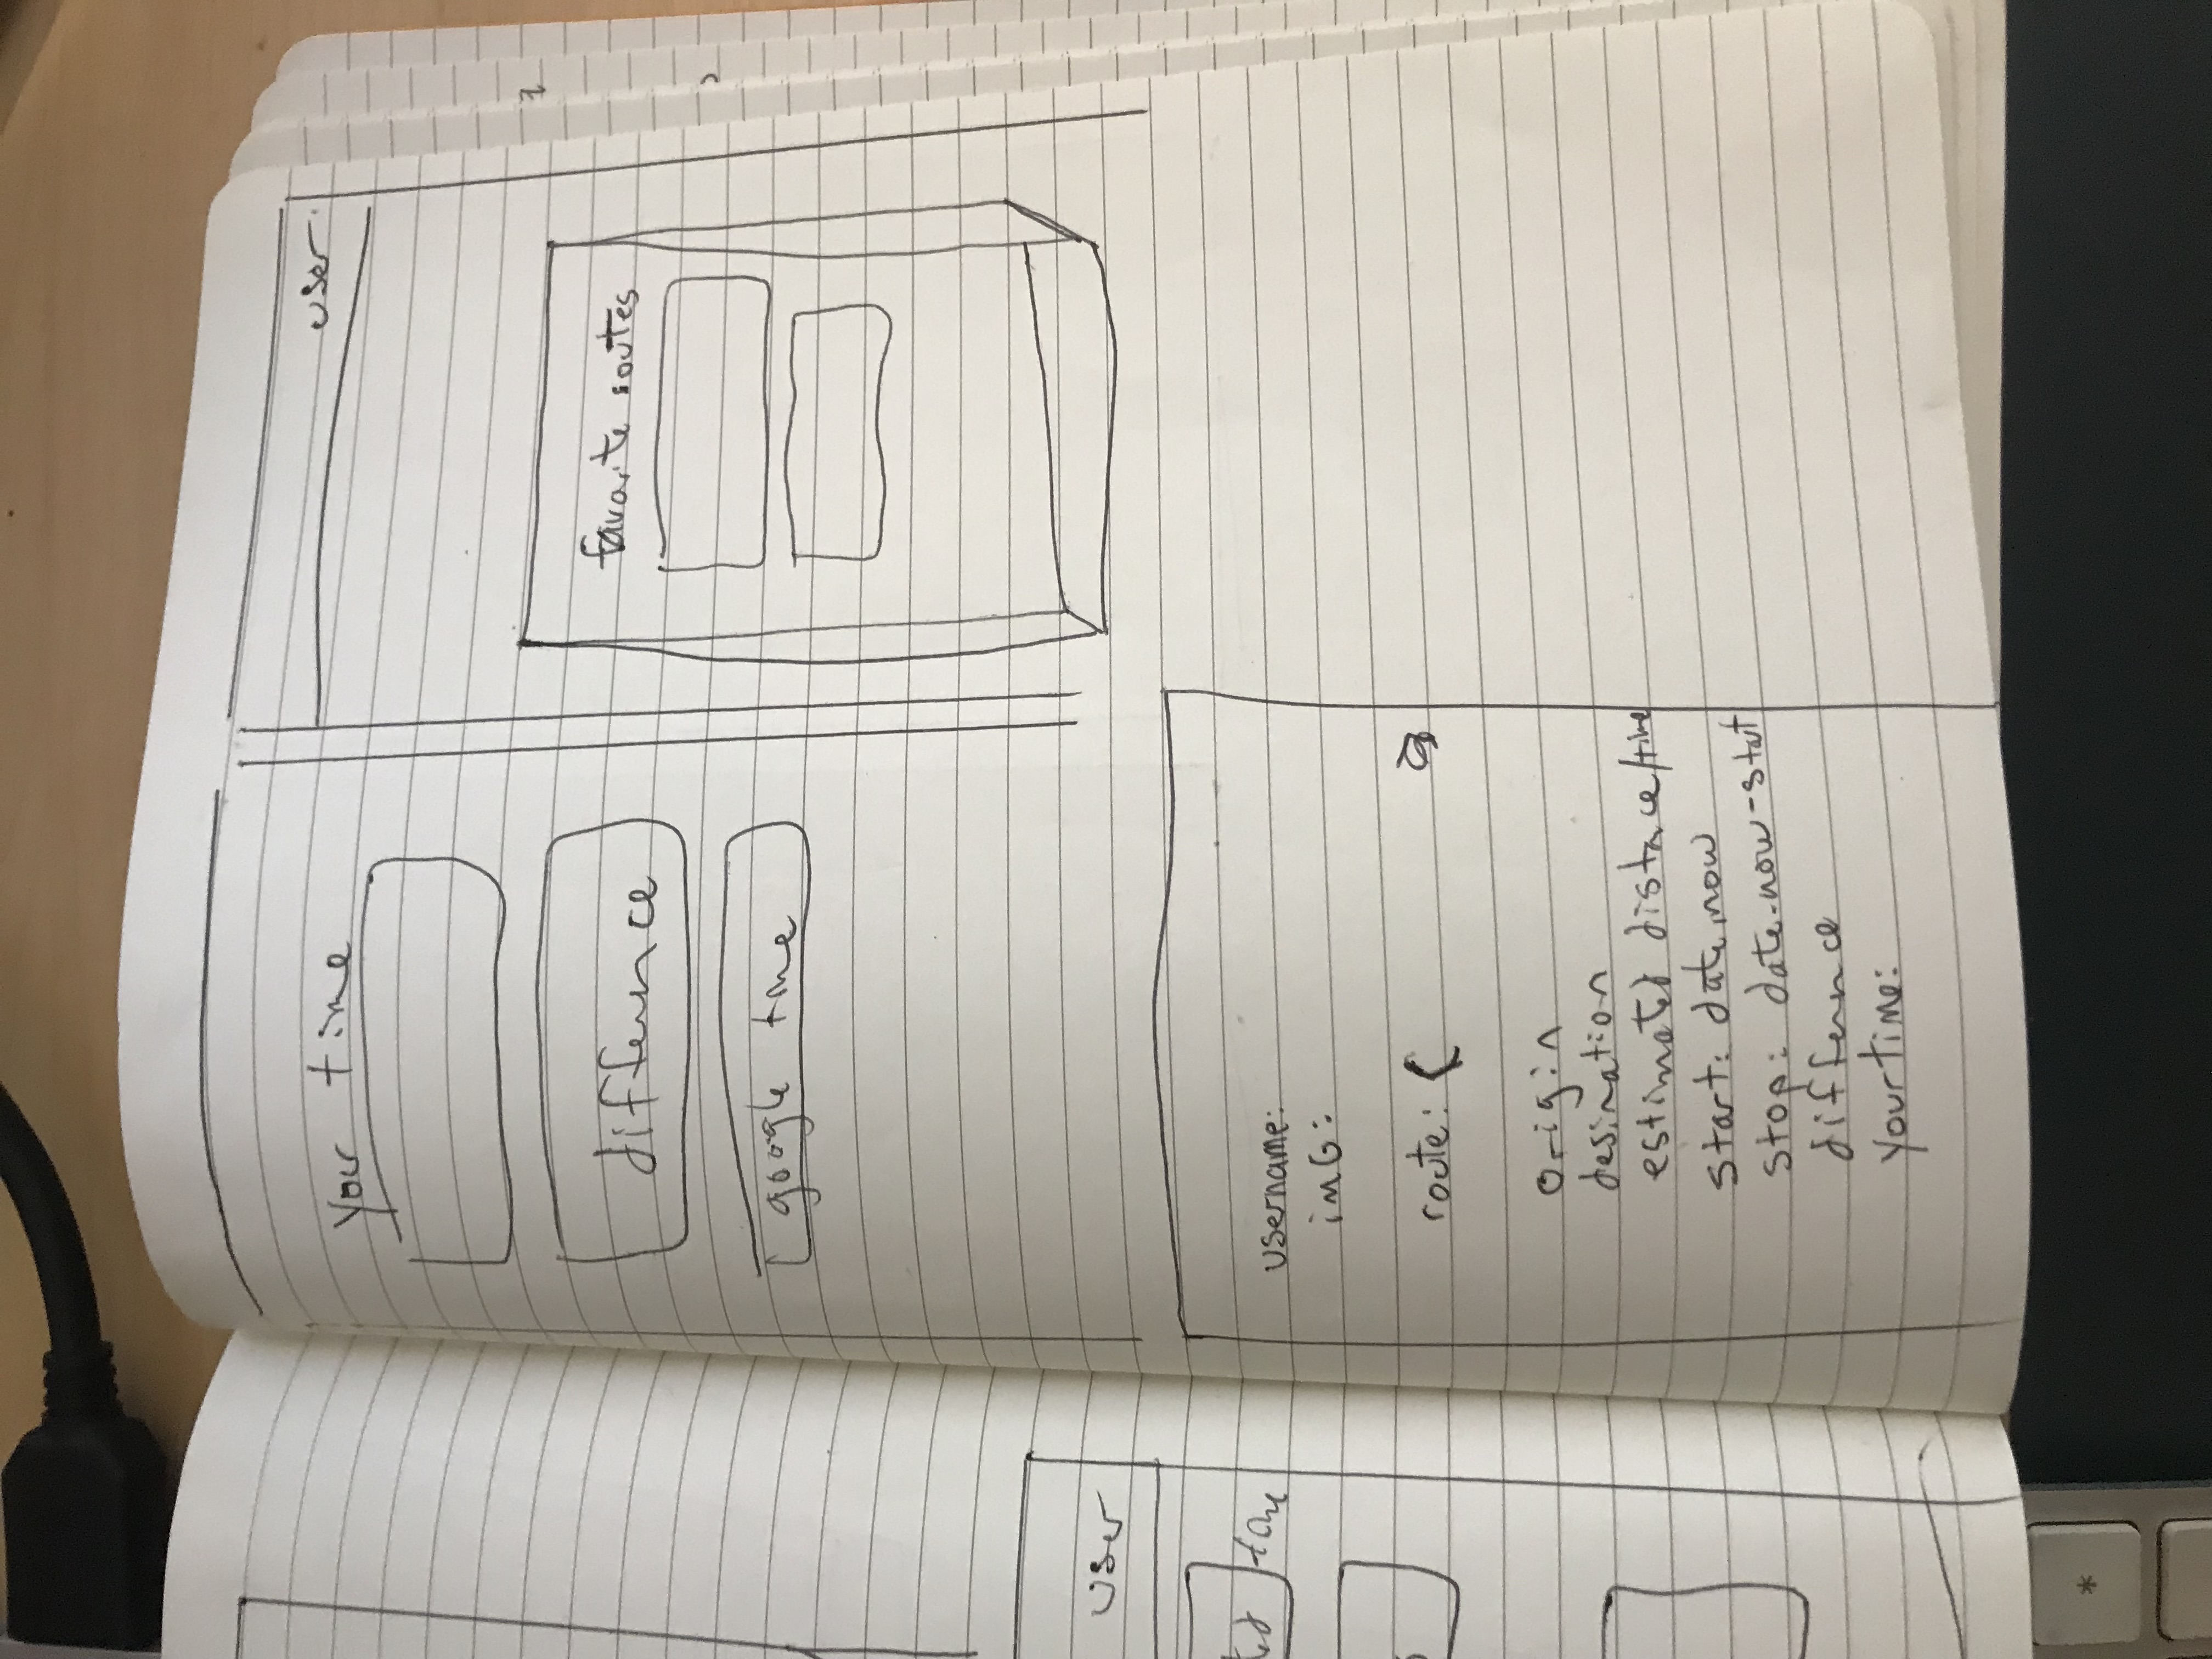 your time
difference
google time
user
favorite routes
user
time
username:
imG:
route: {
origin
desination
estimated distance/time
start: date.now
stop: date.now-start
difference
yourtime:
*